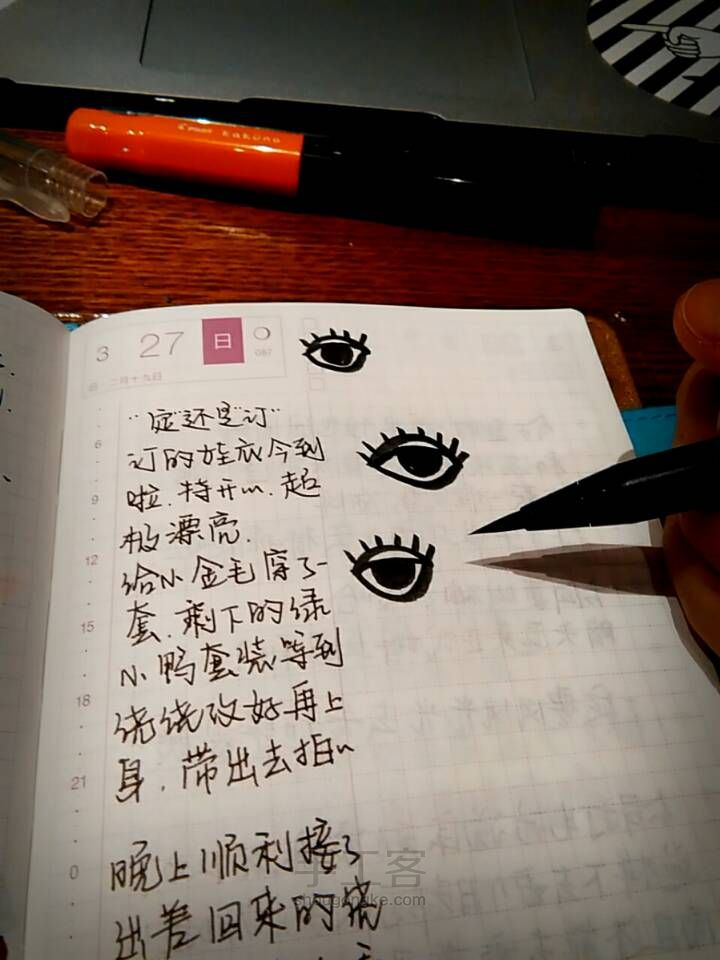 PILOT kakuno
3 27 日
087
二月十九日
"定"还是"订"
6
订的娃衣今到
9
啦.特开心.超
极漂亮.
12
给小金毛穿了一
15
套.剩下的绿
小鸭套装等到
18
绕绕改好再上
21
身.带出去拍
0
晚上顺利接了
出差回来的绕
手工客
shougongke.com